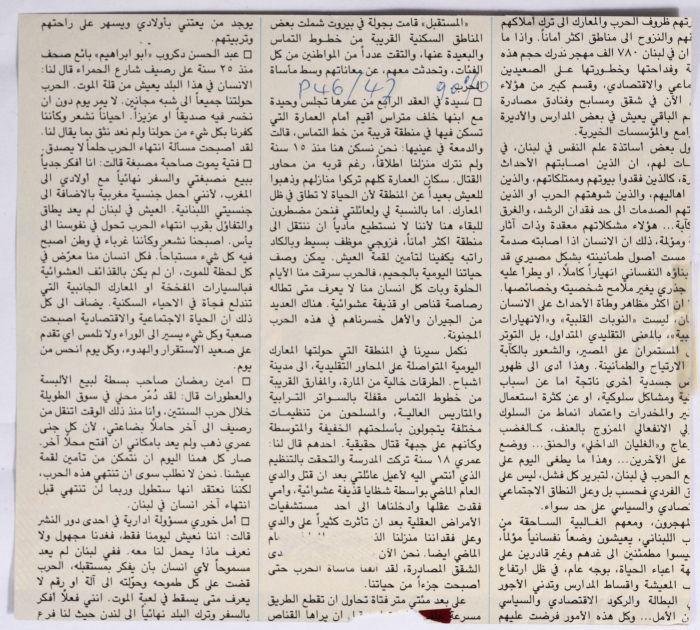 تهم ظروف الحرب والمعارك الى ترك املاكهم
هم والنزوح الى مناطق اكثر اماناً. واذا ما
ان في لبنان ٧٨٠ الف مهجر ندرك حجم هذه
ة وفداحتها وخطورتها على الصعيدين
ماعي والاقتصادي، وقسم كبير من هؤلاء
ن الآن في شقق ومسابح وفنادق مصادرة
م الباقي يعيش في بعض المدارس والأديرة
امع والمؤسسات الخيرية.
ول بعض اساتذة علم النفس في لبنان، في
ات لهم، ان الذين اصابتهم الأحداث
رة، كالذين فقدوا بيوتهم وممتلكاتهم، والذين
اهاليهم، والذين شوهتهم الحرب او الذين
تهم الصدمات الى حد فقدان الرشد، والغرق
كآبة... هؤلاء مشكلاتهم معقدة وذات آثار
ومؤلمة، ذلك ان الانسان اذا اصابته صدمة
مست اصول طمأنينته بشكل مصيري قد
بناؤه النفساني انهياراً كاملاً، او يطرأ عليه
جذري يغير ملامح شخصيته وخصائصها.
ان اكثر مظاهر وطأة الأحداث على الانسان
ان، ليست «النوبات القلبية» و«الانهيارات
بية»، بالمعنى التقليدي المتداول، بل التوتر
المستمران على المصير، والشعور بالكآبة
الارتياح والطمأنينة. وهذا ادى الى ظهور
ض جسدية اخرى ناتجة اما عن اسباب
ية ومشاكل سلوكية، او عن كثرة استعمال
ير والمخدرات واعتماد انماط من السلوك
لي الانفعالي الممزوج بالعنف، كالغضب
عاج و«الغليان الداخلي» والحنق... ووضع
على الآخرين... وهذا ما يطغى اليوم على
مع الحرب في لبنان، لتبرير كل فشل، ليس على
ق الفردي فحسب بل وعلى النطاق الاجتماعي
تصادي والسياسي على حد سواء.
مهجرون، ومعهم الغالبية الساحقة من
ب اللبناني، يعيشون وضعاً نفسانياً مؤلماً،
يسوا مطمئنين الى غدهم وغير قادرين على
هة اعباء الحياة، بوجه عام، في ظل ارتفاع
ف المعيشة واقساط المدارس وتدني الأجور
البطالة والركود الاقتصادي والسياسي
ن الأمل... وكل هذه الأمور فرضت عليهم
«المستقبل» قامت بجولة في بيروت شملت بعض
المناطق السكنية القريبة من خطوط التماس
والبعيدة عنها، والتقت عدداً من المواطنين من كل
الفئات، وتحدثت معهم، عن معاناتهم وسط مأساة
الحرب.
P46/47
□ سيدة في العقد الرابع من عمرها تجلس وحيدة
مع ابنها خلف متراس اقيم امام العمارة التي
تسكن فيها في منطقة قريبة من خط التماس، قالت
والدمعة في عينيها: نحن نسكن هنا منذ ١٥ سنة
ولم نترك منزلنا اطلاقاً، رغم قربه من محاور
القتال. سكان العمارة كلهم تركوا منازلهم وذهبوا
للعيش بعيداً عن المنطقة لأن الحياة لا تطاق في ظل
المعارك. اما بالنسبة لي ولعائلتي فنحن مضطرون
للبقاء هنا لأننا لا نستطيع مادياً ان ننتقل الى
منطقة اكثر اماناً، فزوجي موظف بسيط وبالكاد
راتبه يكفينا لتامين لقمة العيش. يمكن وصف
حياتنا اليومية بالجحيم، فالحرب سرقت منا الأيام
الحلوة وبات كل انسان منا لا يعرف متى تطاله
رصاصة قناص او قذيفة عشوائية. هناك العديد
من الجيران والأهل خسرناهم في هذه الحرب
المجنونة.
نكمل سيرنا في المنطقة التي حولتها المعارك
اليومية المتواصلة على المحاور التقليدية، الى مدينة
اشباح. الطرقات خالية من المارة، والمفارق القريبة
من خطوط التماس مقفلة بالسواتر الترابية
والمتاريس العالية، والمسلحون من تنظيمات
مختلفة يتجولون بأسلحتهم الخفيفة والمتوسطة
وكأنهم على جبهة قتال حقيقية. احدهم قال لنا:
عمري ١٨ سنة تركت المدرسة والتحقت بالتنظيم
الذي أنتمي اليه لأعيل عائلتي بعد ان قتل والدي
العام الماضي بواسطة شظايا قذيفة عشوائية، وامي
فقدت عقلها وادخلناها الى احد مستشفيات
الأمراض العقلية بعد ان تأثرت كثيراً على والدي
وعلى فقداننا منزلنا الذ ام
الماضي ايضا. نحن الآن دى
الشقق المصادرة، لقد الحرب حتى
اصبحت جزءاً من حياتنا.
على بعد مئتي متر فتاة تحاول ان تقطع الطريق
مسرعة ل ان يراها القناص
يوجد من يعتني بأولادي ويسهر على راحتهم
وتربيتهم.
□ عبد الحسن دكروب «ابو ابراهيم» بائع صحف
منذ ٢٥ سنة على رصيف شارع الحمراء قال لنا:
الانسان في هذا البلد يعيش من قلة الموت. الحرب
حولتنا جميعاً الى شبه مجانين. لا يمر يوم دون ان
نخسر فيه صديقاً او عزيزاً. احياناً نشعر وكأننا
كفرنا بكل شيء من حولنا ولم نعد نثق بما يقال لنا.
لقد اصبحت مسألة انتهاء الحرب حلماً لا يصدق.
□ فتية يموت صاحبة مصبغة قالت: انا افكر جدياً
ببيع مصبغتي والسفر نهائياً مع اولادي الى
المغرب، لأنني احمل جنسية مغربية بالاضافة الى
جنسيتي اللبنانية. العيش في لبنان لم يعد يطاق
والتفاؤل بقرب انتهاء الحرب تحول في نفوسنا الى
يأس. اصبحنا نشعر وكأننا غرباء في وطن اصبح
فيه كل شيء مستباحاً. فكل انسان منا معرّض في
كل لحظة للموت، ان لم يكن بالقذائف العشوائية
فبالسيارات المفخخة او المعارك الجانبية التي
تندلع فجأة في الاحياء السكنية. يضاف الى كل
ذلك ان الحياة الاجتماعية والاقتصادية اصبحت
صعبة وكل شيء يسير الى الوراء ولا نلمس اي تقدم
على صعيد الاستقرار والهدوء، وكل يوم انحس من
يوم.
□ امين رمضان صاحب بسطة لبيع الألبسة
والعطورات قال: لقد دُمّر محلي في سوق الطويلة
خلال حرب السنتين، وانا منذ ذلك الوقت اتنقل من
رصيف الى آخر حاملاً بضاعتي، لأن كل جنى
عمري ذهب ولم يعد بامكاني ان أفتح محلاً آخر.
صار كل همنا اليوم ان نتمكن من تأمين لقمة
عيشنا. نحن لا نطلب سوى ان تنتهي هذه الحرب،
لكننا نعتقد انها ستطول وربما لن تنتهي قبل
انتهاء آخر انسان في لبنان.
□ امل خوري مسؤولة ادارية في احدى دور النشر
قالت: اننا نعيش ليومنا فقط، فغدنا مجهول ولا
نعرف ماذا يحمل لنا معه. ففي لبنان لم يعد
مسموحاً لأي انسان بأن يفكر بمستقبله، الحرب
قضت على كل طموحه وحوّلته الى آلة او رقم لا
يعرف متى يسقط في لعبة الموت. انني فعلاً افكر
بالسفر وترك البلد نهائياً الى لندن حيث لنا فرع